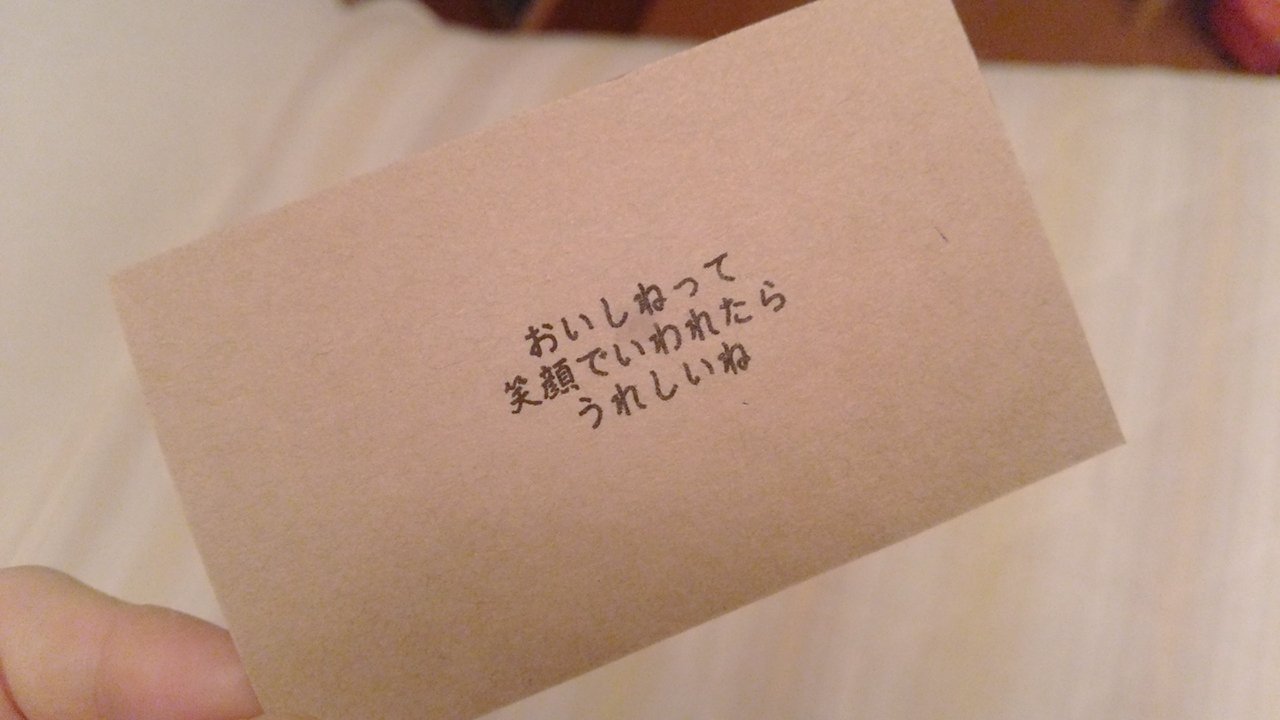 おいしねって
笑顔でいわれたら
うれしいね